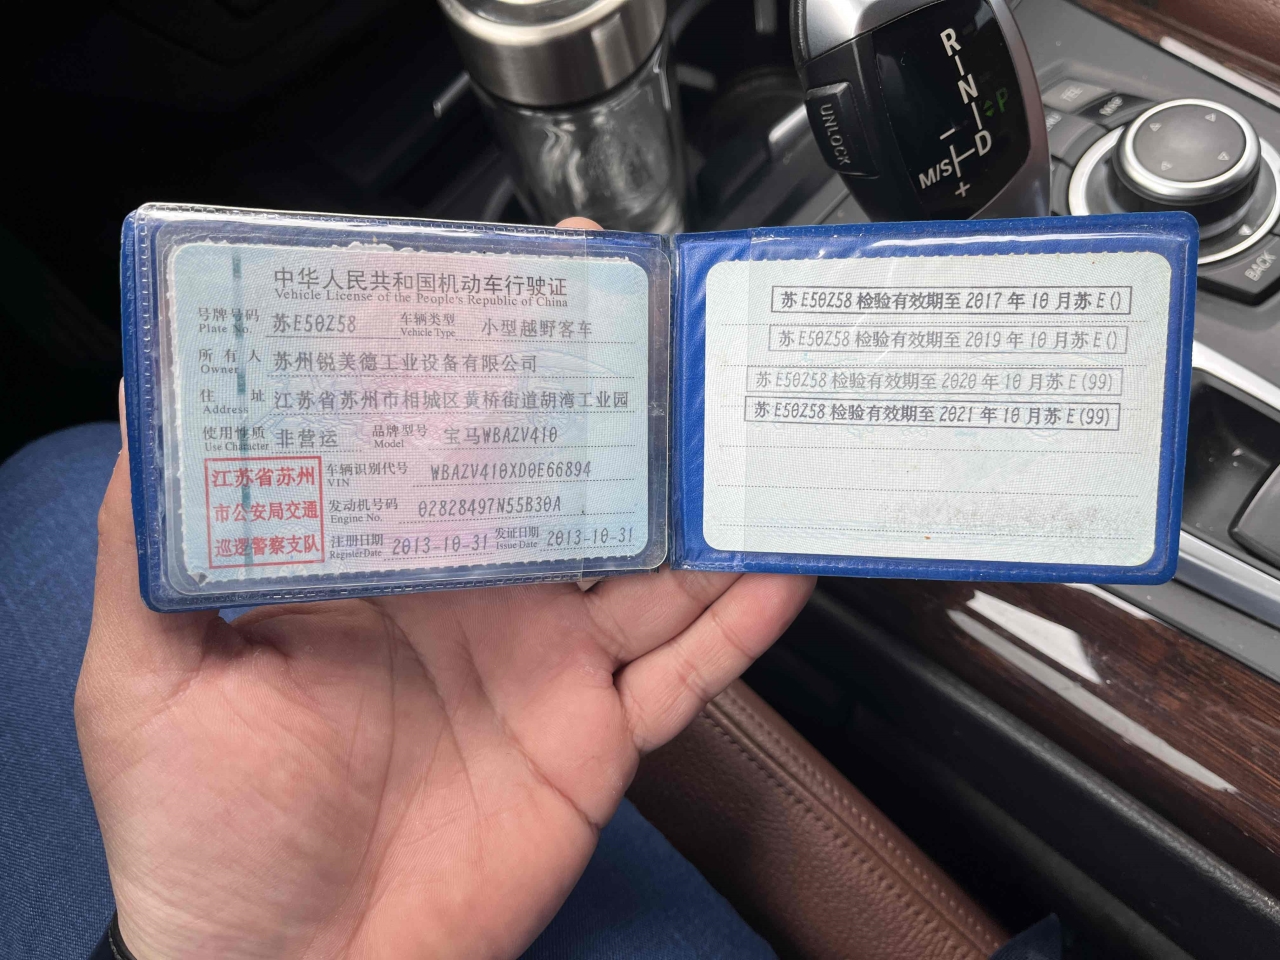 中华人民共和国机动车行驶证
Vehicle License of the People's Republic of China
号牌号码 苏E50Z58 车辆类型 小型越野客车
Plate No. Vehicle Type
所有人 苏州锐美德工业设备有限公司
Owner
住址 江苏省苏州市相城区黄桥街道胡湾工业园
Address
使用性质 非营运 品牌型号 宝马WBAZV410
Use Character Model
江苏省苏州
市公安局交通
巡逻警察支队
车辆识别代号 WBAZV410XD0E66894
VIN
发动机号码 02828497N55B30A
Engine No.
注册日期 2013-10-31 发证日期 2013-10-31
Register Date Issue Date
苏E50Z58 检验有效期至 2017 年 10 月苏 E()
苏E50Z58 检验有效期至 2019 年 10 月苏 E()
苏E50Z58 检验有效期至 2020 年 10 月苏 E(99)
苏E50Z58 检验有效期至 2021 年 10 月苏 E(99)
UNLOCK
R
N
P
D
M/S
-
+
MAP
BACK